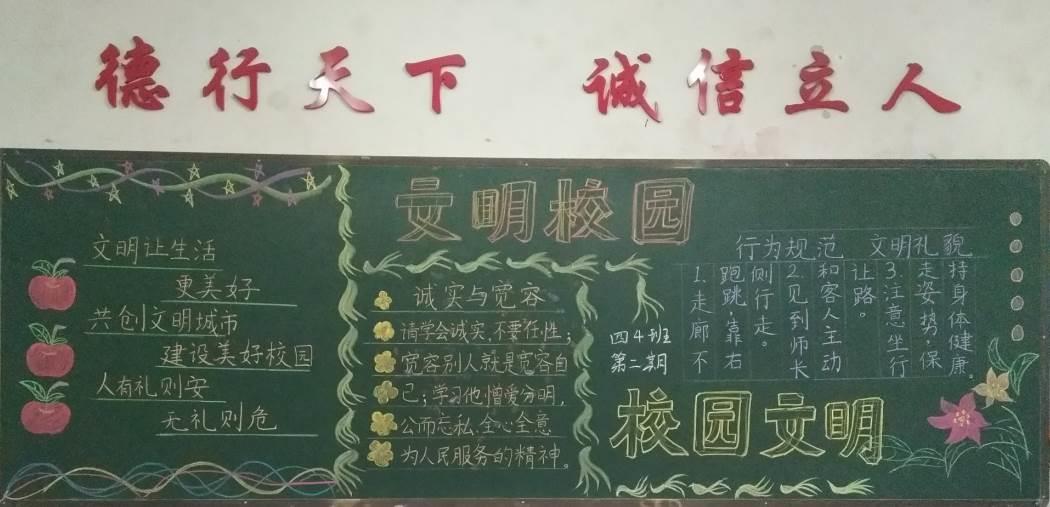 德行天下 诚信立人
文明让生活
更美好
共创文明城市
建设美好校园
人有礼则安
无礼则危
文明校园
诚实与宽容
请学会诚实,不要任性;
宽容别人就是宽容自
己;学习他憎爱分明,
公而忘私,全心全意
为人民服务的精神。
四4班
第二期
行为规范 文明礼貌
1.走廊不
跑跳,靠右
侧行走。
2.见到师长
和客人主动
让路。
3.注意坐行
走姿势,保
持身体健康。
校园文明